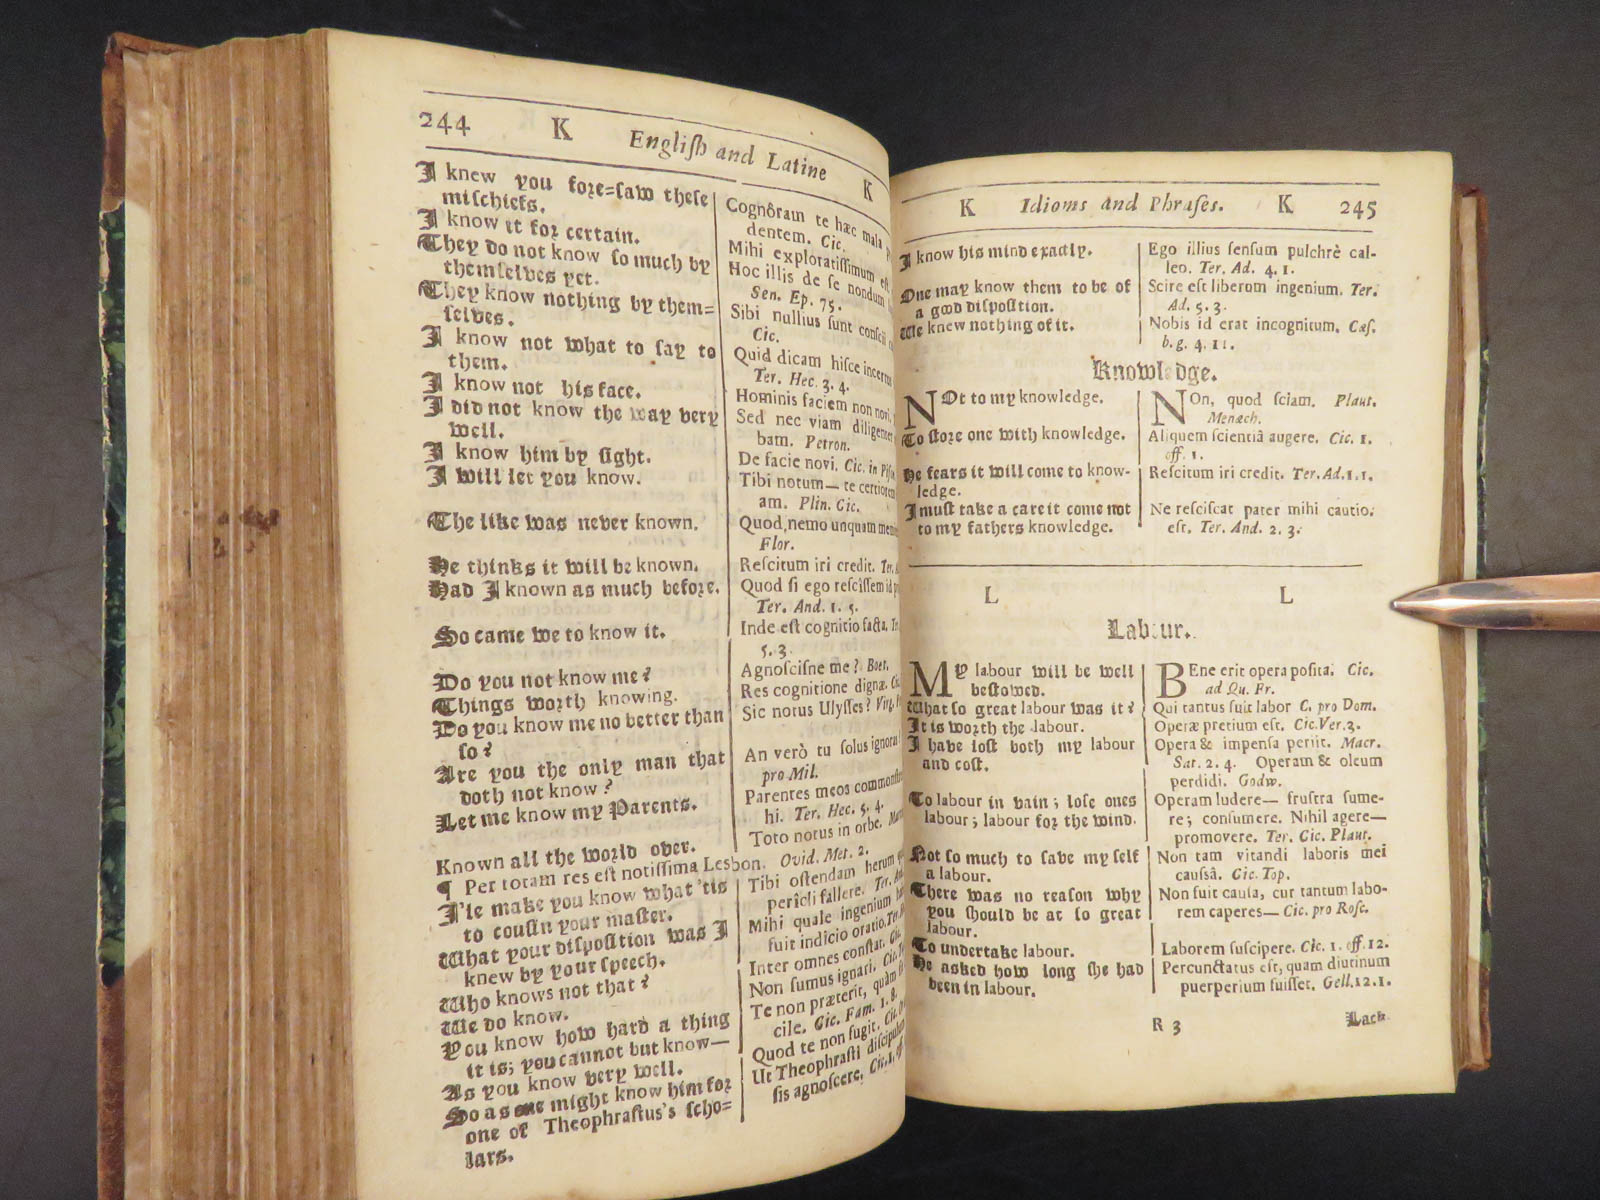 244 K English and Latine K
I knew you fore=saw these
mischiefs.
I know it for certain.
They do not know so much by
themselves yet.
They know nothing by them=
selves.
I know not what to say to
them.
I know not his face.
I did not know the way very
well.
I know him by sight.
I will let you know.
The like was never known.
He thinks it will be known.
Had I known as much before.
So came we to know it.
Do you not know me?
Things worth knowing.
Do you know me no better than
so?
Are you the only man that
doth not know?
Let me know my Parents.
Known all the world over.
¶ Per totam res est notissima Lesbon. Ovid. Met. 2.
I'le make you know what 'tis
to cousin your master.
What your disposition was I
knew by your speech.
Who knows not that?
We do know.
You know how hard a thing
it is; you cannot but know—
As you know very well.
So as one might know him for
one of Theophrastus's scho=
lars.
Cognôram te hæc mala
dentem. Cic.
Mihi exploratissimum est
Hoc illis de se nondum
Sen. Ep. 75.
Sibi nullius sunt conscii
Cic.
Quid dicam hisce incertus
Ter. Hec. 3. 4.
Hominis faciem non novi.
Sed nec viam diligenter
bam. Petron.
De facie novi. Cic. in Pis
Tibi notum— te certiorem
am. Plin. Cic.
Quod nemo unquam
Flor.
Rescitum iri credit. Ter.
Quod si ego rescissem id
Ter. And. 1. 5.
Inde est cognitio facta.
5. 3.
Agnoscisne me? Boet.
Res cognitione dignæ.
Sic notus Ulysses? Virg.
An verò tu solus ignoras
pro Mil.
Parentes meos
hi. Ter. Hec. 5. 4.
Toto notus in orbe.
Tibi ostendam herum
pericli fallere. Ter.
Mihi quale ingenium
fuit indicio oratio. Ter.
Inter omnes constat. Cic.
Non sumus ignari. Cic.
Te non præterit, quàm
cile. Cic. Fam. 1. 8.
Quod te non fugit. Cic.
Ut Theophrasti discipulum
sis agnoscere. Cic.
K Idioms and Phrases. K 245
I know his mind exactly.
One may know them to be of
a good disposition.
We knew nothing of it.
Ego illius sensum pulchrè cal-
leo. Ter. Ad. 4. 1.
Scire est liberum ingenium. Ter.
Ad. 5. 3.
Nobis id erat incognitum. Cæs.
b. g. 4. 11.
Knowledge.
NOt to my knowledge.
To store one with knowledge.
He fears it will come to know-
ledge.
I must take a care it come not
to my fathers knowledge.
NOn, quod sciam. Plaut.
Menæch.
Aliquem scientiâ augere. Cic. 1.
off. 1.
Rescitum iri credit. Ter. Ad. 1. 1.
Ne resciscat pater mihi cautio
est. Ter. And. 2. 3.
L L
Labour.
MY labour will be well
bestowed.
What so great labour was it?
It is worth the labour.
I have lost both my labour
and cost.
To labour in vain; lose ones
labour; labour for the wind.
Not so much to save my self
a labour.
There was no reason why
you should be at so great
labour.
To undertake labour.
He asked how long she had
been in labour.
BEne erit opera posita. Cic.
ad Qu. Fr.
Qui tantus fuit labor C. pro Dom.
Operæ pretium est. Cic. Ver. 3.
Opera & impensa periit. Macr.
Sat. 2. 4. Operam & oleum
perdidi. Godw.
Operam ludere— frustra sume-
re; consumere. Nihil agere—
promovere. Ter. Cic. Plaut.
Non tam vitandi laboris mei
caussâ. Cic. Top.
Non fuit causa, cur tantum labo-
rem caperes— Cic. pro Rosc.
Laborem suscipere. Cic. 1. off. 12.
Percunctatus est, quam diutinum
puerperium fuisset. Gell. 12. 1.
R 3
Lack